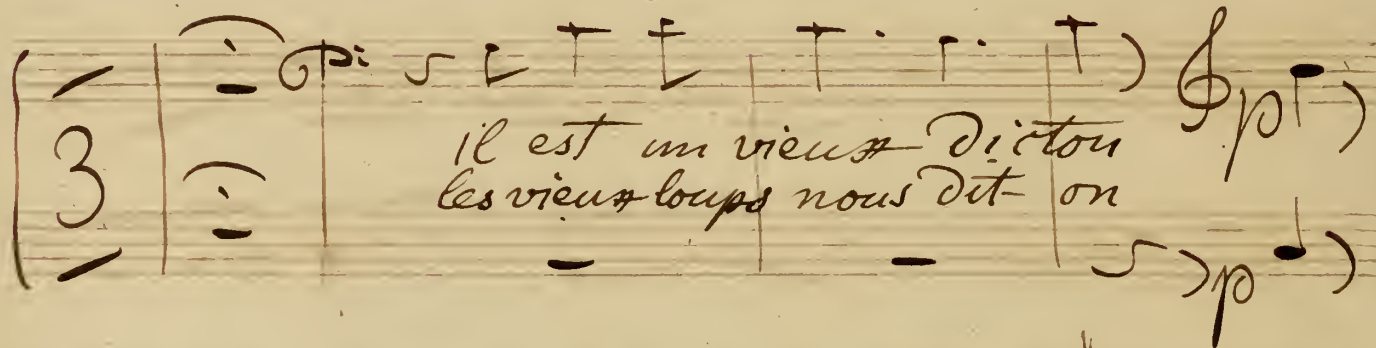 3
il est un vieux Dicton
les vieux loups nous dit-on
p
p